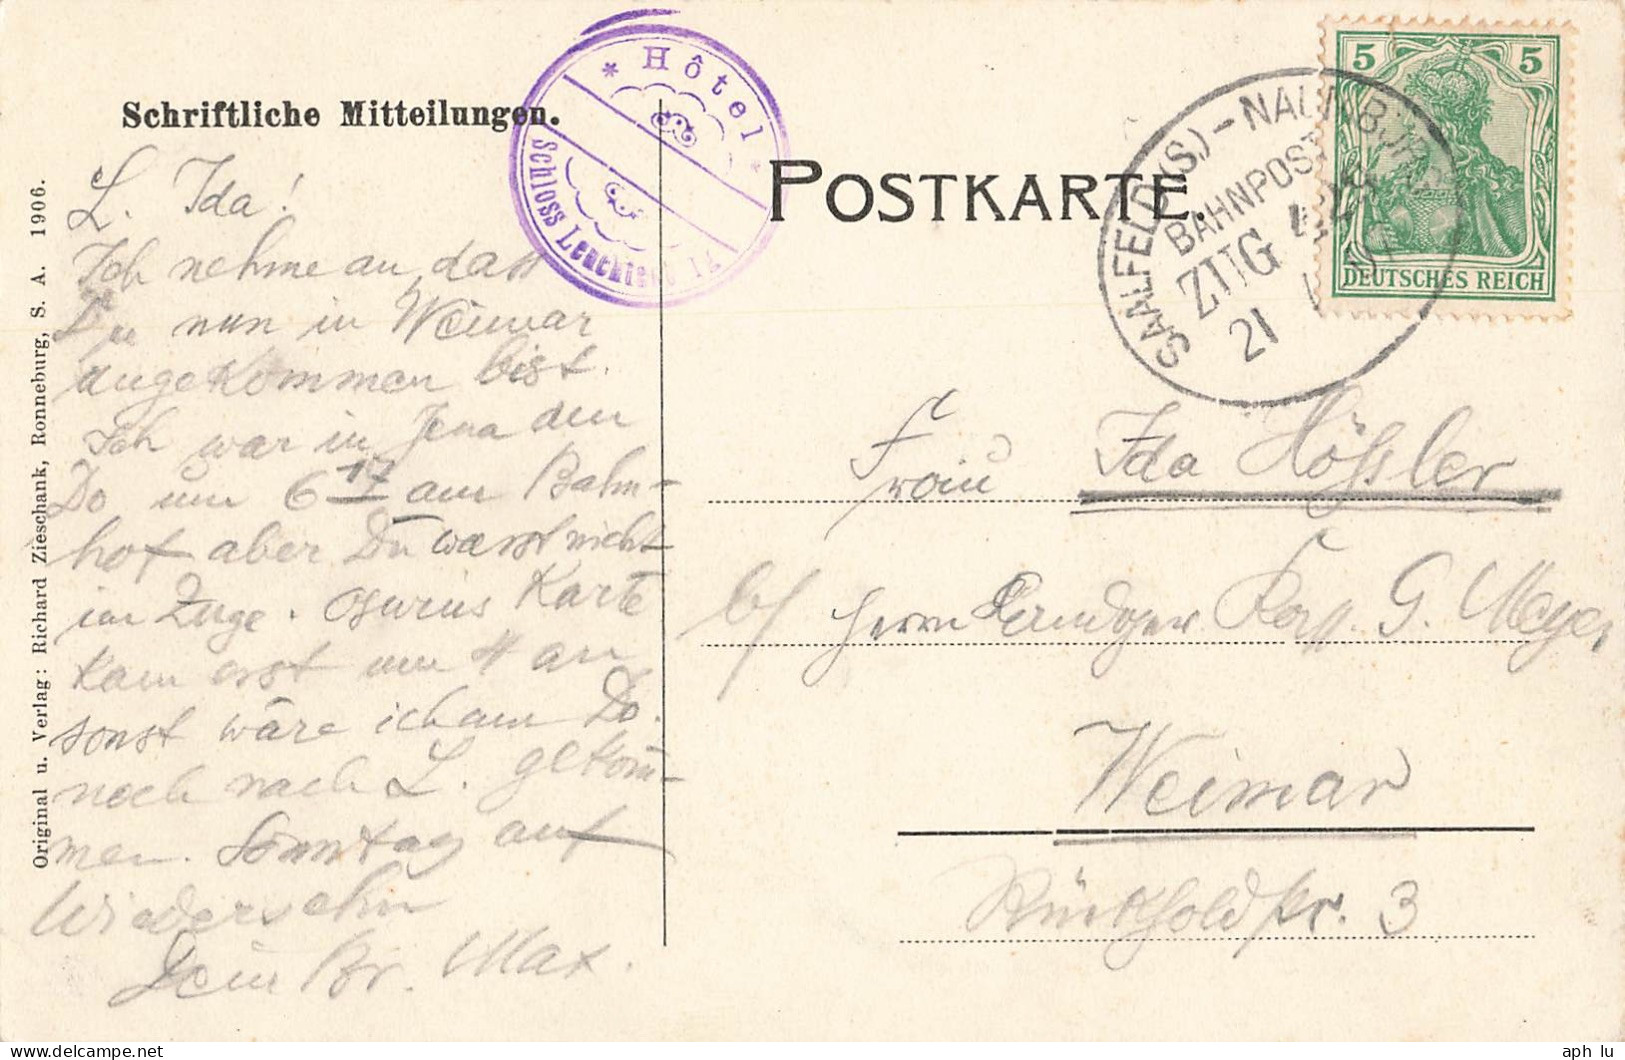 Schriftliche Mitteilungen.
* Hôtel *
Schloss Leuchtenburg
POSTKARTE.
SAALFELD (S.) - NAUMBURG
BAHNPOST
ZUG
21
5 5
DEUTSCHES REICH
Original u. Verlag: Richard Zieschank, Ronneburg, S. A. 1906.
L. Ida!
Ich nehme an, dass
Du nun in Weimar
angekommen bist.
Ich war in Jena den
Do um 6 17 am Bahn-
hof aber Du warst nicht
im Zuge. Karte
kam erst um 4 an
sonst wäre ich am Do.
noch nach L. gekom-
men. Sonntag auf
Wiedersehn
Dein Br. Max.
Frau Ida Hößler
b/ Herrn G. Meyer
Weimar
str. 3
aph lu